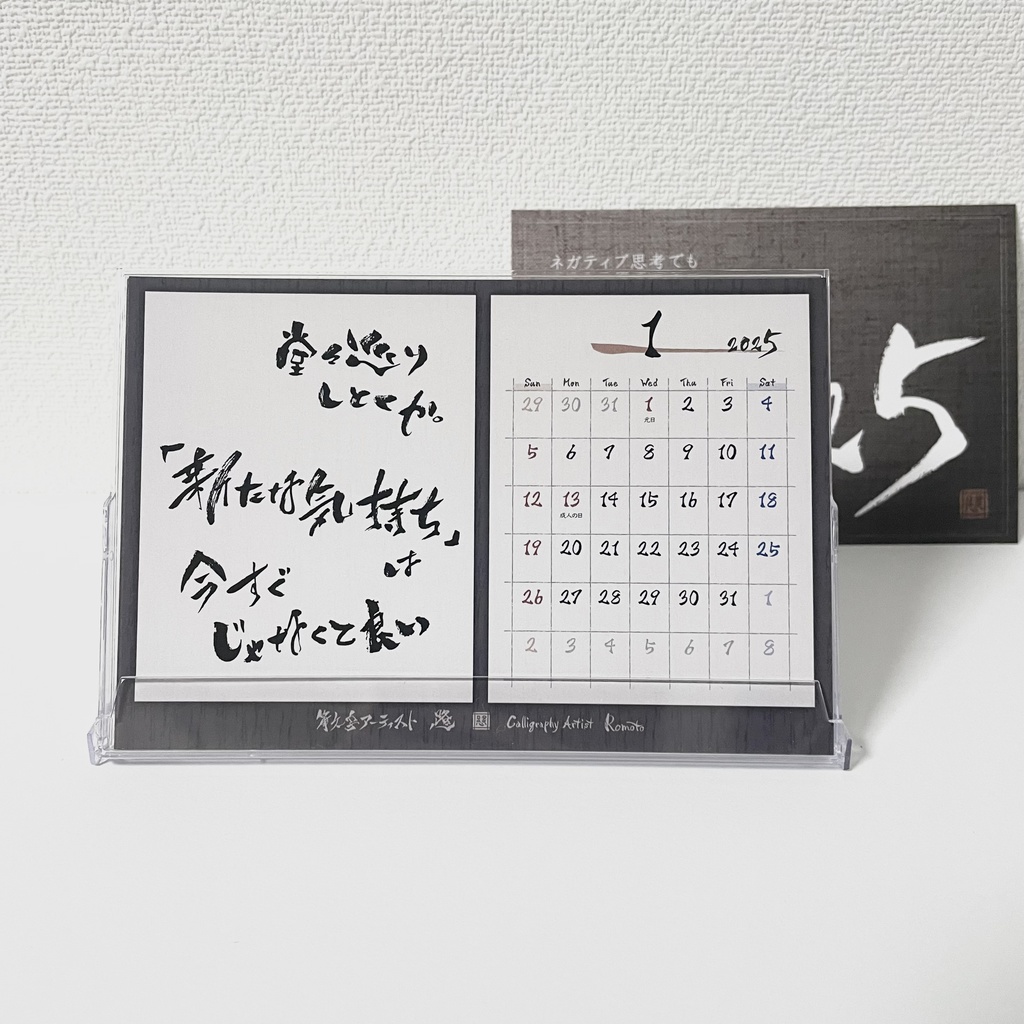 堂々巡り
しとこか。
「新たな気持ち」
は
今すぐ
じゃなくて良い
1 2025
Sun Mon Tue Wed Thu Fri Sat
29 30 31 1 2 3 4
元日
5 6 7 8 9 10 11
12 13 14 15 16 17 18
成人の日
19 20 21 22 23 24 25
26 27 28 29 30 31 1
2 3 4 5 6 7 8
アーティスト
Calligraphy Artist Komoto
ネガティブ思考でも
25